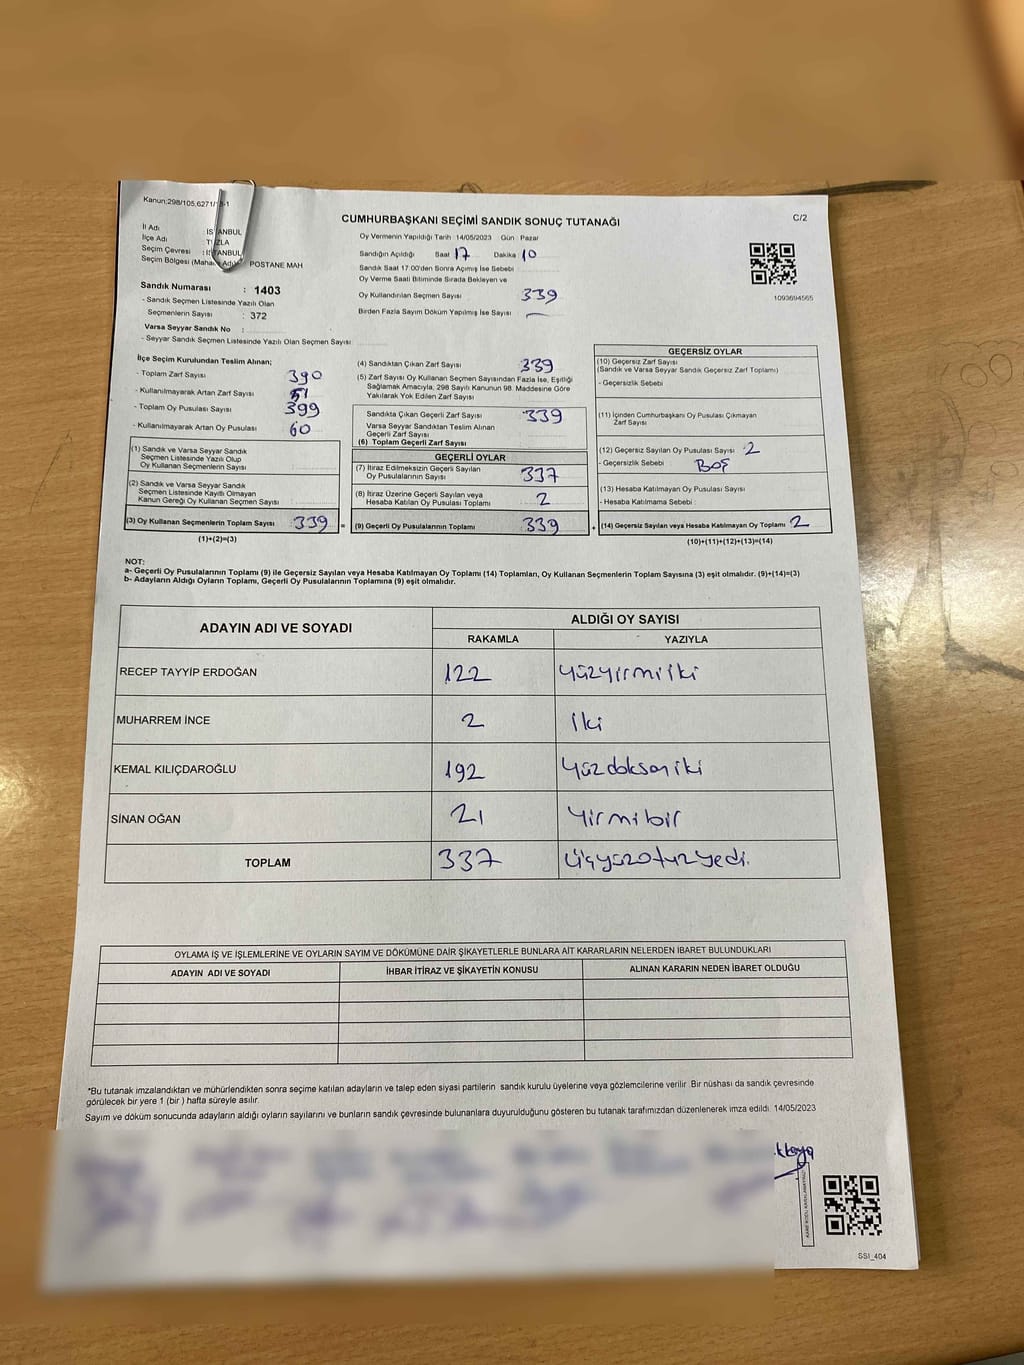 Kanun:298/105,6271/
CUMHURBAŞKANI SEÇİMİ SANDIK SONUÇ TUTANAĞI
C/2
İl Adı
İlçe Adı
Seçim Çevresi
Seçim Bölgesi POSTANE MAH
Oy Vermenin Yapıldığı Tarih 14/05/2023 Gün Pazar
Sandığın Açıldığı Saat 17 Dakika 10
Sandık Saat 17.00'den Sonra Açmış İse Sebebi
Oy Verme Saati Bitiminde Sırada Bekleyen ve
Oy Kullandırılan Seçmen Sayısı 339
Birden Fazla Sayım Döküm Yapılmış İse Sayısı —
1093694565
Sandık Numarası : 1403
- Sandık Seçmen Listesinde Yazılı Olan
Seçmenlerin Sayısı : 372
Varsa Seyyar Sandık No :
- Seyyar Sandık Seçmen Listesinde Yazılı Olan Seçmen Sayısı
İlçe Seçim Kurulundan Teslim Alınan;
- Toplam Zarf Sayısı 390
- Kullanılmayarak Artan Zarf Sayısı 51
- Toplam Oy Pusulası Sayısı 399
- Kullanılmayarak Artan Oy Pusulası 60
(1) Sandık ve Varsa Seyyar Sandık
Seçmen Listesinde Yazılı Olup
Oy Kullanan Seçmenlerin Sayısı
(2) Sandık ve Varsa Seyyar Sandık
Seçmen Listesinde Kayıtlı Olmayan
Kanun Gereği Oy Kullanan Seçmen Sayısı
(3) Oy Kullanan Seçmenlerin Toplam Sayısı 339 =
(1)+(2)=(3)
(4) Sandıktan Çıkan Zarf Sayısı 339
(5) Zarf Sayısı Oy Kullanan Seçmen Sayısından Fazla İse, Eşitliği
Sağlamak Amacıyla, 298 Sayılı Kanunun 98. Maddesine Göre
Yakılarak Yok Edilen Zarf Sayısı
Sandıkta Çıkan Geçerli Zarf Sayısı 339
Varsa Seyyar Sandıktan Teslim Alınan
Geçerli Zarf Sayısı
(6) Toplam Geçerli Zarf Sayısı
GEÇERLİ OYLAR
(7) İtiraz Edilmeksizin Geçerli Sayılan
Oy Pusulalarının Sayısı 337
(8) İtiraz Üzerine Geçerli Sayılan veya
Hesaba Katılan Oy Pusulası Toplamı 2
(9) Geçerli Oy Pusulalarının Toplamı 339 +
GEÇERSİZ OYLAR
(10) Geçersiz Zarf Sayısı
(Sandık ve Varsa Seyyar Sandık Geçersiz Zarf Toplamı)
- Geçersizlik Sebebi
(11) İçinden Cumhurbaşkanı Oy Pusulası Çıkmayan
Zarf Sayısı
(12) Geçersiz Sayılan Oy Pusulası Sayısı 2
- Geçersizlik Sebebi BOŞ
(13) Hesaba Katılmayan Oy Pusulası Sayısı
- Hesaba Katılmama Sebebi
(14) Geçersiz Sayılan veya Hesaba Katılmayan Oy Toplamı 2
(10)+(11)+(12)+(13)=(14)
NOT:
a- Geçerli Oy Pusulalarının Toplamı (9) ile Geçersiz Sayılan veya Hesaba Katılmayan Oy Toplamı (14) Toplamları, Oy Kullanan Seçmenlerin Toplam Sayısına (3) eşit olmalıdır. (9)+(14)=(3)
b- Adayların Aldığı Oyların Toplamı, Geçerli Oy Pusulalarının Toplamına (9) eşit olmalıdır.
ADAYIN ADI VE SOYADI ALDIĞI OY SAYISI
RAKAMLA YAZIYLA
RECEP TAYYİP ERDOĞAN 122 yüzyirmiiki
MUHARREM İNCE 2 iki
KEMAL KILIÇDAROĞLU 192 yüzdoksaniki
SİNAN OĞAN 21 yirmibir
TOPLAM 337 üçyüzotuzyedi.
OYLAMA İŞ VE İŞLEMLERİNE VE OYLARIN SAYIM VE DÖKÜMÜNE DAİR ŞİKAYETLERLE BUNLARA AİT KARARLARIN NELERDEN İBARET BULUNDUKLARI
ADAYIN ADI VE SOYADI İHBAR İTİRAZ VE ŞİKAYETİN KONUSU ALINAN KARARIN NEDEN İBARET OLDUĞU
*Bu tutanak imzalandıktan ve mühürlendikten sonra seçime katılan adayların ve talep eden siyasi partilerin sandık kurulu üyelerine veya gözlemcilerine verilir. Bir nüshası da sandık çevresinde
görülecek bir yere 1 (bir) hafta süreyle asılır.
Sayım ve döküm sonucunda adayların aldığı oyların sayılarını ve bunların sandık çevresinde bulunanlara duyurulduğunu gösteren bu tutanak tarafımızdan düzenlenerek imza edildi. 14/05/2023
SSI_404